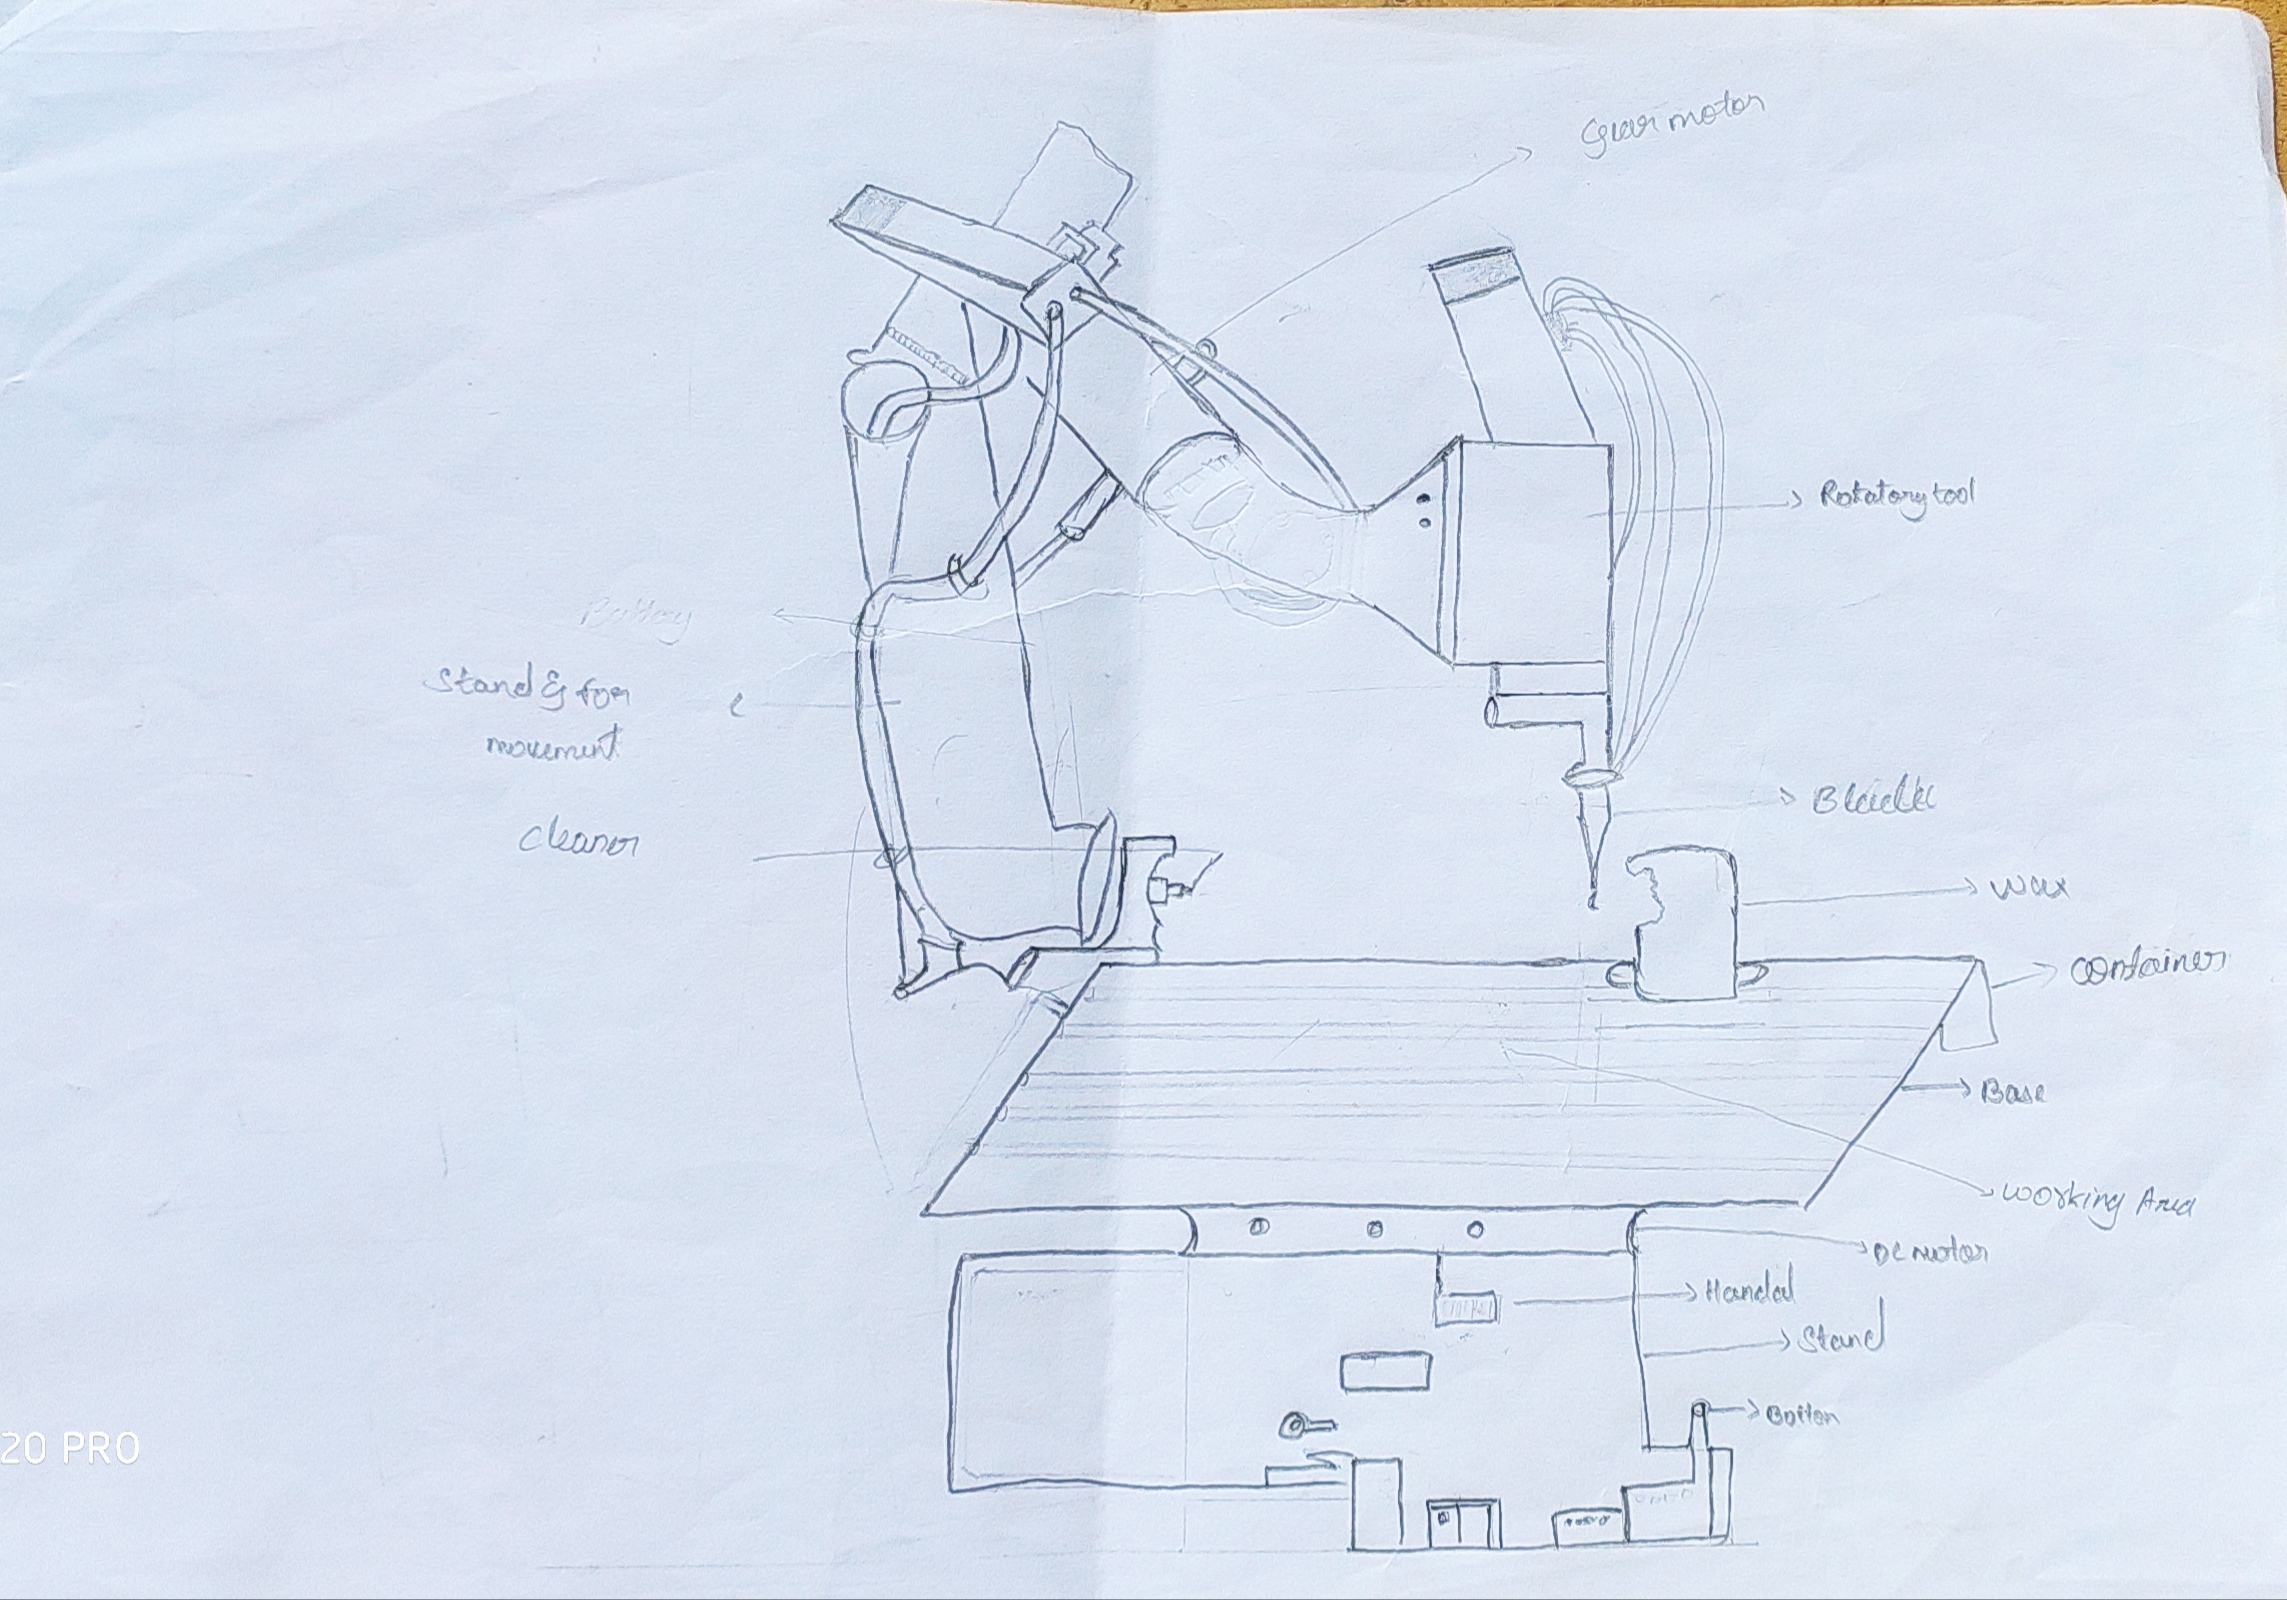 Gear motor
Rotatory tool
Battery
Stand & for
movement
Cleaner
Wax
Container
Base
Working Area
DC motor
Handal
Stand
20 PRO